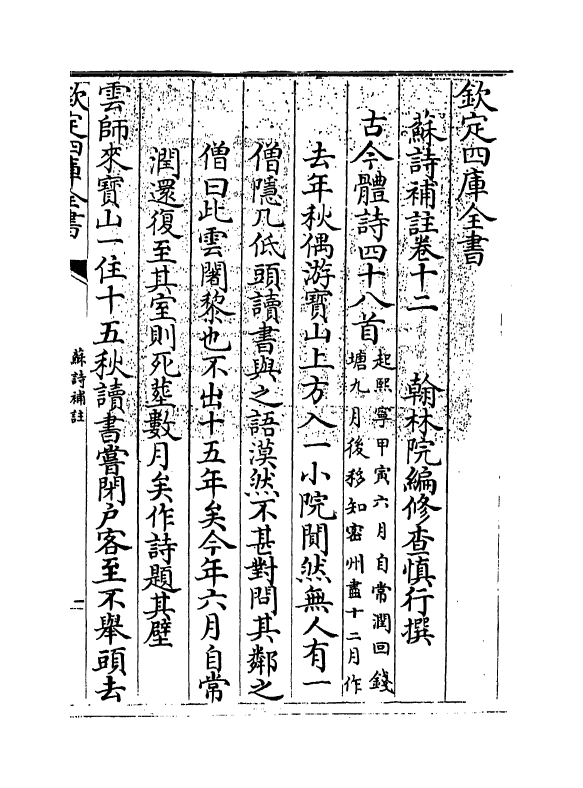 欽定四庫全書
蘇詩補註卷十二　　翰林院編修查慎行撰
古今體詩四十八首
起熙寧甲寅六月自常潤回錢
塘九月後移知密州盡十二月作
去年秋偶游寶山上方入一小院闃然無人有一
僧隱几低頭讀書與之語漠然不甚對問其鄰之
僧曰此雲闍黎也不出十五年矣今年六月自常
潤還復至其室則死塟數月矣作詩題其壁
雲師來寶山一住十五秋讀書嘗閉戶客至不舉頭去
欽定四庫全書
蘇詩補註
一